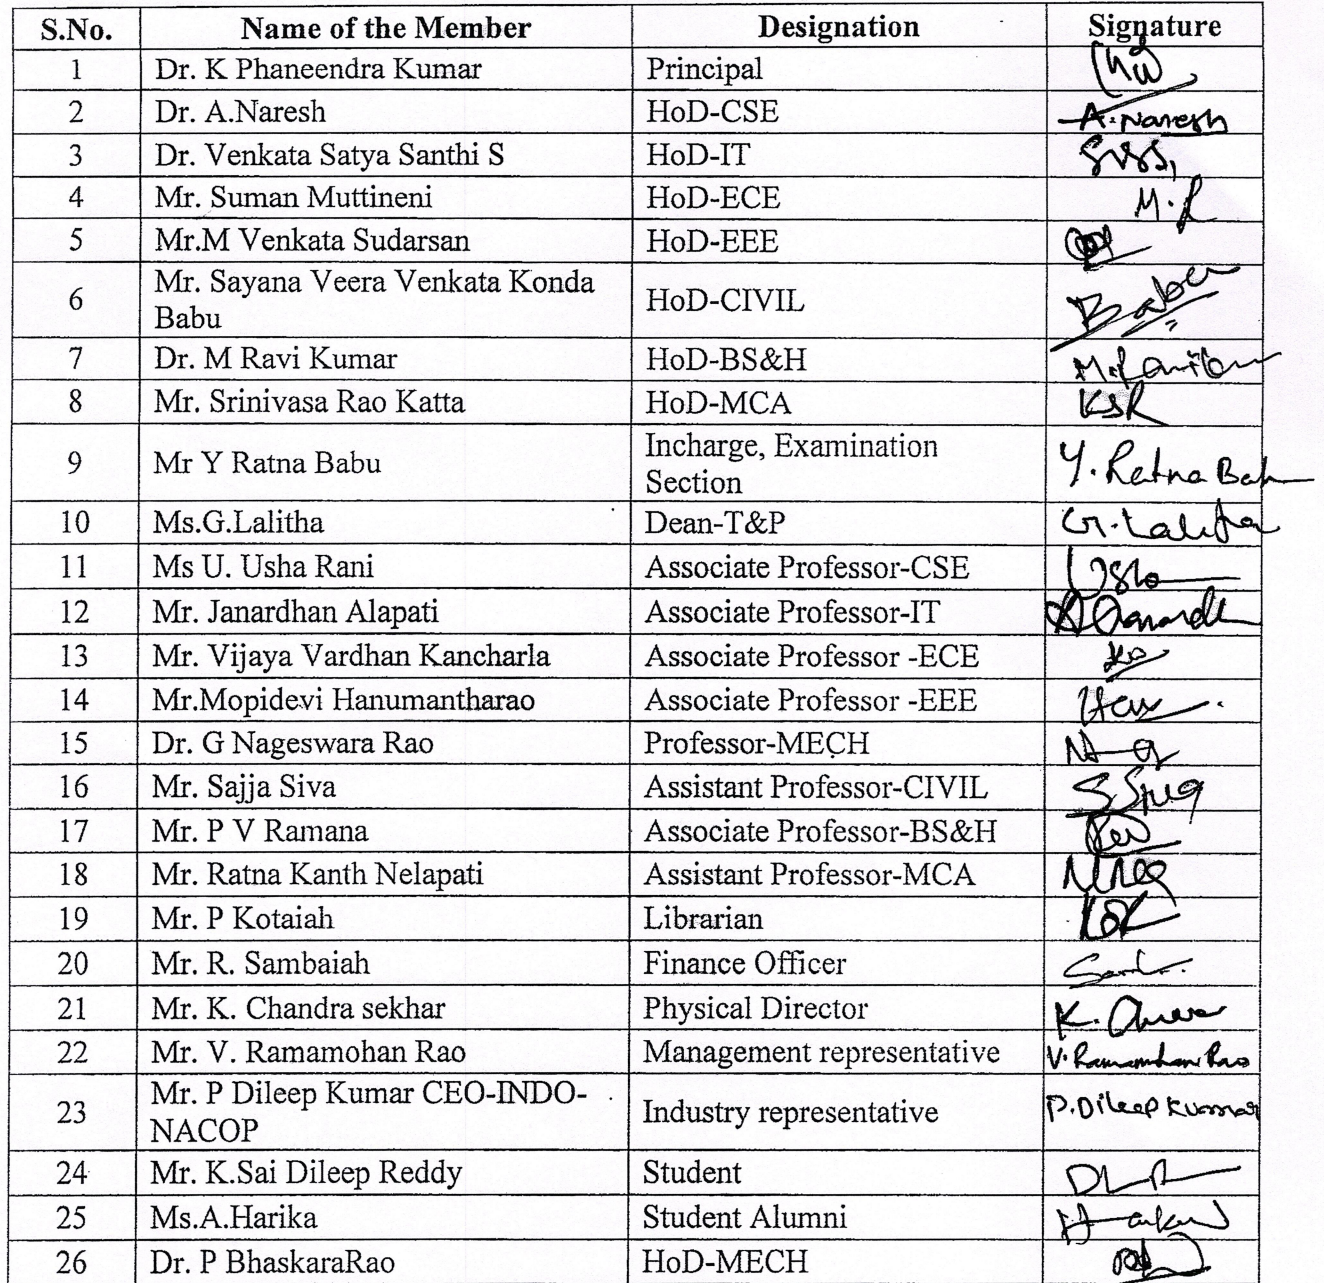 S.No. Name of the Member Designation Signature
1 Dr. K Phaneendra Kumar Principal
2 Dr. A.Naresh HoD-CSE A. Naresh
3 Dr. Venkata Satya Santhi S HoD-IT
4 Mr. Suman Muttineni HoD-ECE
5 Mr.M Venkata Sudarsan HoD-EEE
6 Mr. Sayana Veera Venkata Konda
Babu HoD-CIVIL Babu
7 Dr. M Ravi Kumar HoD-BS&H
8 Mr. Srinivasa Rao Katta HoD-MCA KSR
9 Mr Y Ratna Babu Incharge, Examination
Section Y. Ratna Babu
10 Ms.G.Lalitha Dean-T&P G. Lalitha
11 Ms U. Usha Rani Associate Professor-CSE Usha
12 Mr. Janardhan Alapati Associate Professor-IT
13 Mr. Vijaya Vardhan Kancharla Associate Professor -ECE
14 Mr.Mopidevi Hanumantharao Associate Professor -EEE
15 Dr. G Nageswara Rao Professor-MECH
16 Mr. Sajja Siva Assistant Professor-CIVIL S Siva
17 Mr. P V Ramana Associate Professor-BS&H
18 Mr. Ratna Kanth Nelapati Assistant Professor-MCA
19 Mr. P Kotaiah Librarian
20 Mr. R. Sambaiah Finance Officer
21 Mr. K. Chandra sekhar Physical Director
22 Mr. V. Ramamohan Rao Management representative V. Ramamohan Rao
23 Mr. P Dileep Kumar CEO-INDO-
NACOP Industry representative P. Dileep Kumar
24 Mr. K.Sai Dileep Reddy Student
25 Ms.A.Harika Student Alumni
26 Dr. P BhaskaraRao HoD-MECH